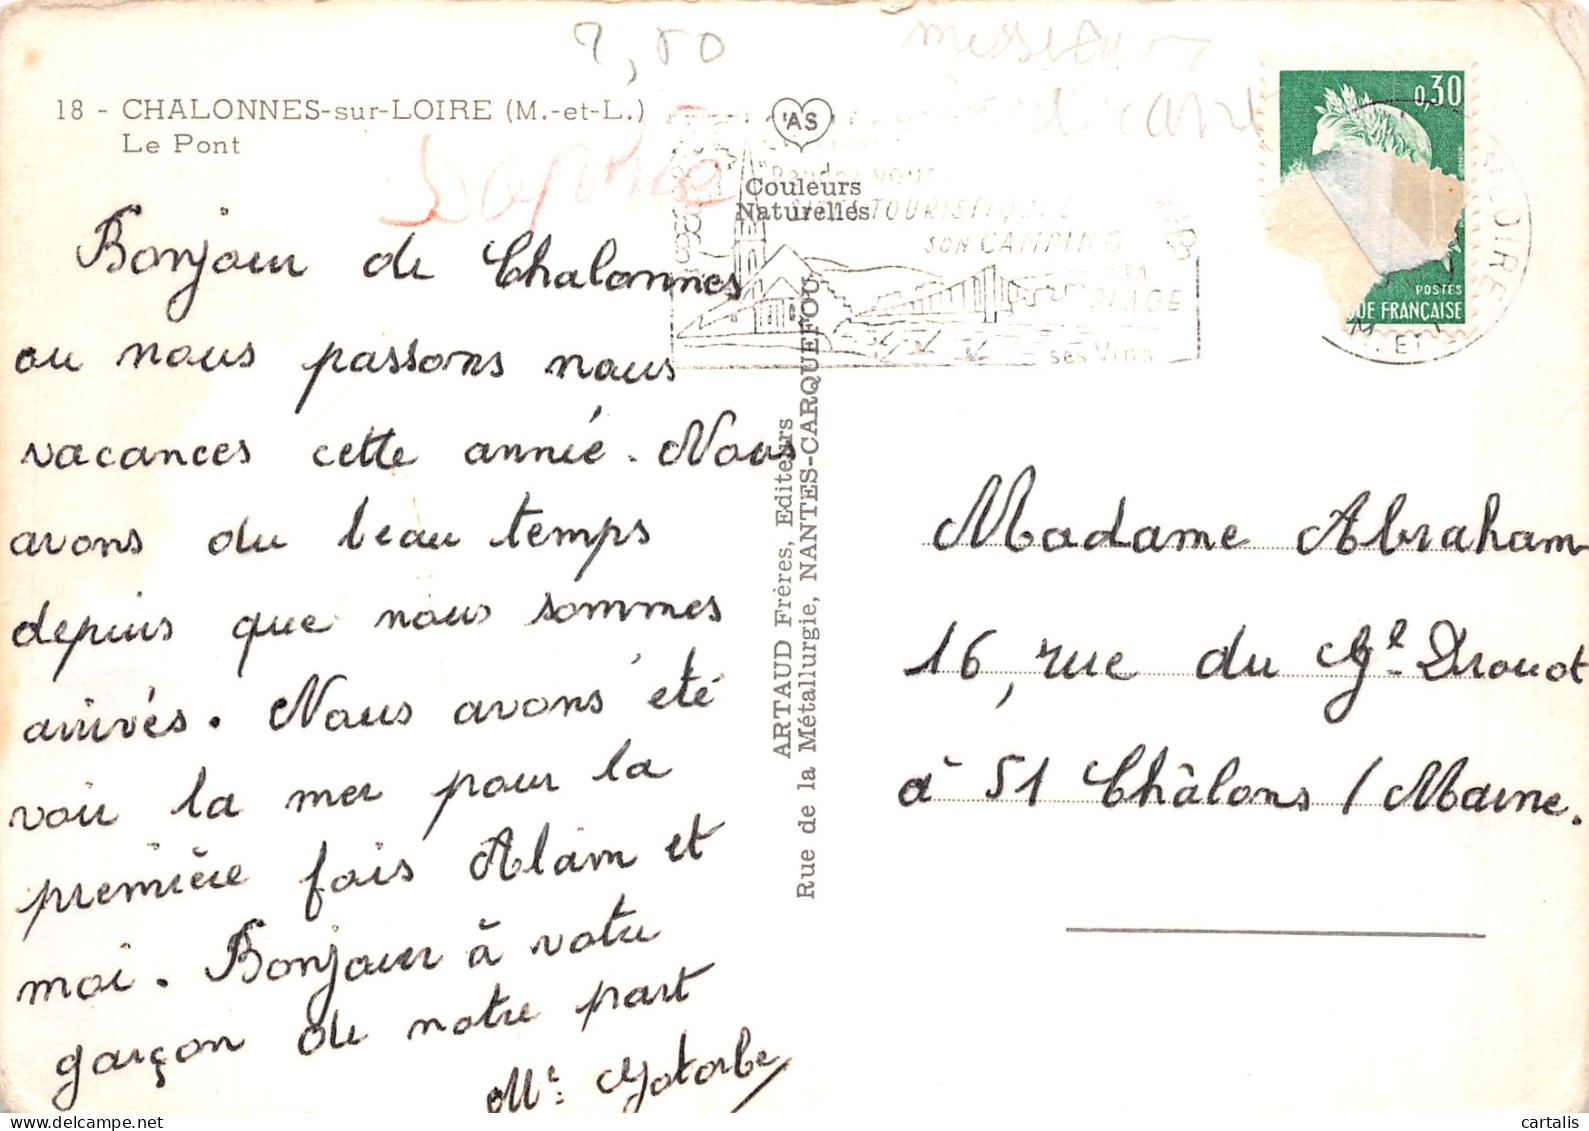 18 - CHALONNES-sur-LOIRE (M.-et-L.)
Le Pont
Bonjour de Chalonnes
ou nous passons nous
vacances cette année. Nous
avons du beau temps
depuis que nous sommes
arrivés. Nous avons été
voir la mer pour la
première fois Alain et
moi. Bonjour à votre
garçon de notre part
Sophie
'AS
Couleurs
Naturelles
ARTAUD Frères, Editeurs
Rue de la Métallurgie, NANTES-CARQUEFOU
TOURISTIQUES
SON CAMPING
SA
PLAGE
ses Vins
0,30
POSTES
QUE FRANÇAISE
LOIRE
M. ET
Madame Abraham
16, rue du Gl Drouot
à 51 Châlons / Marne.
cartalis